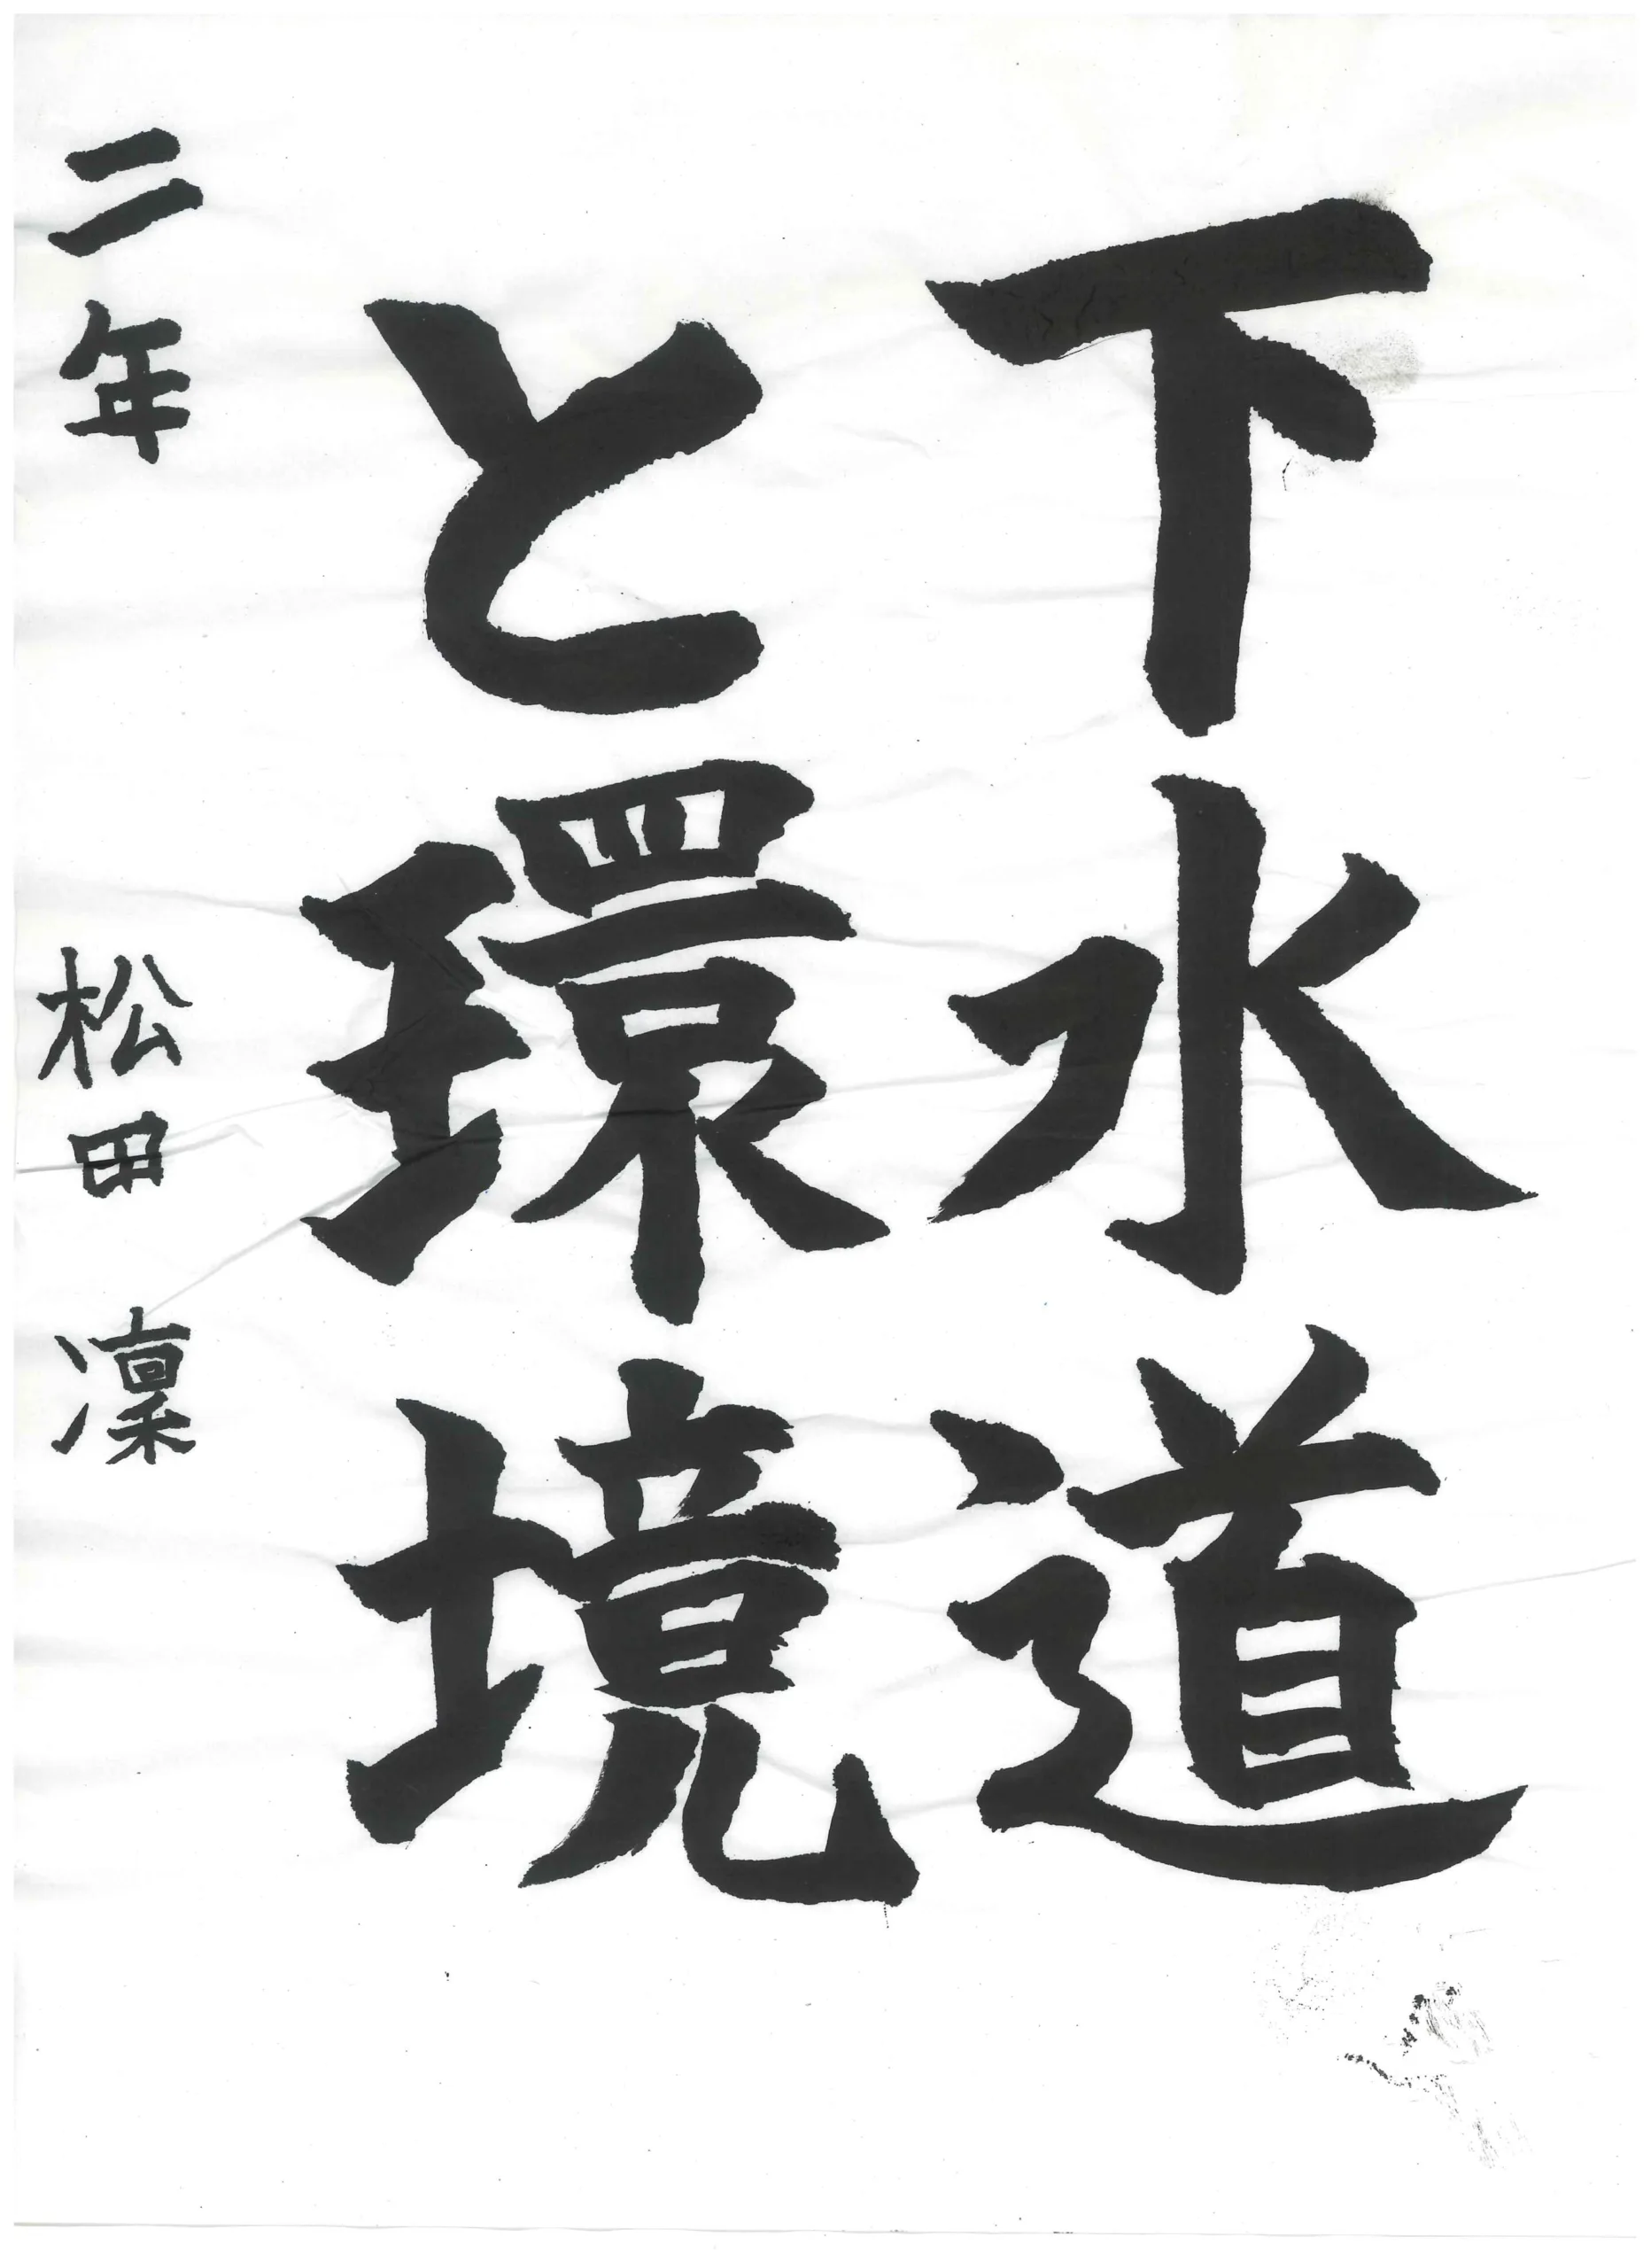 下水道
と環境
二年 松田 凜